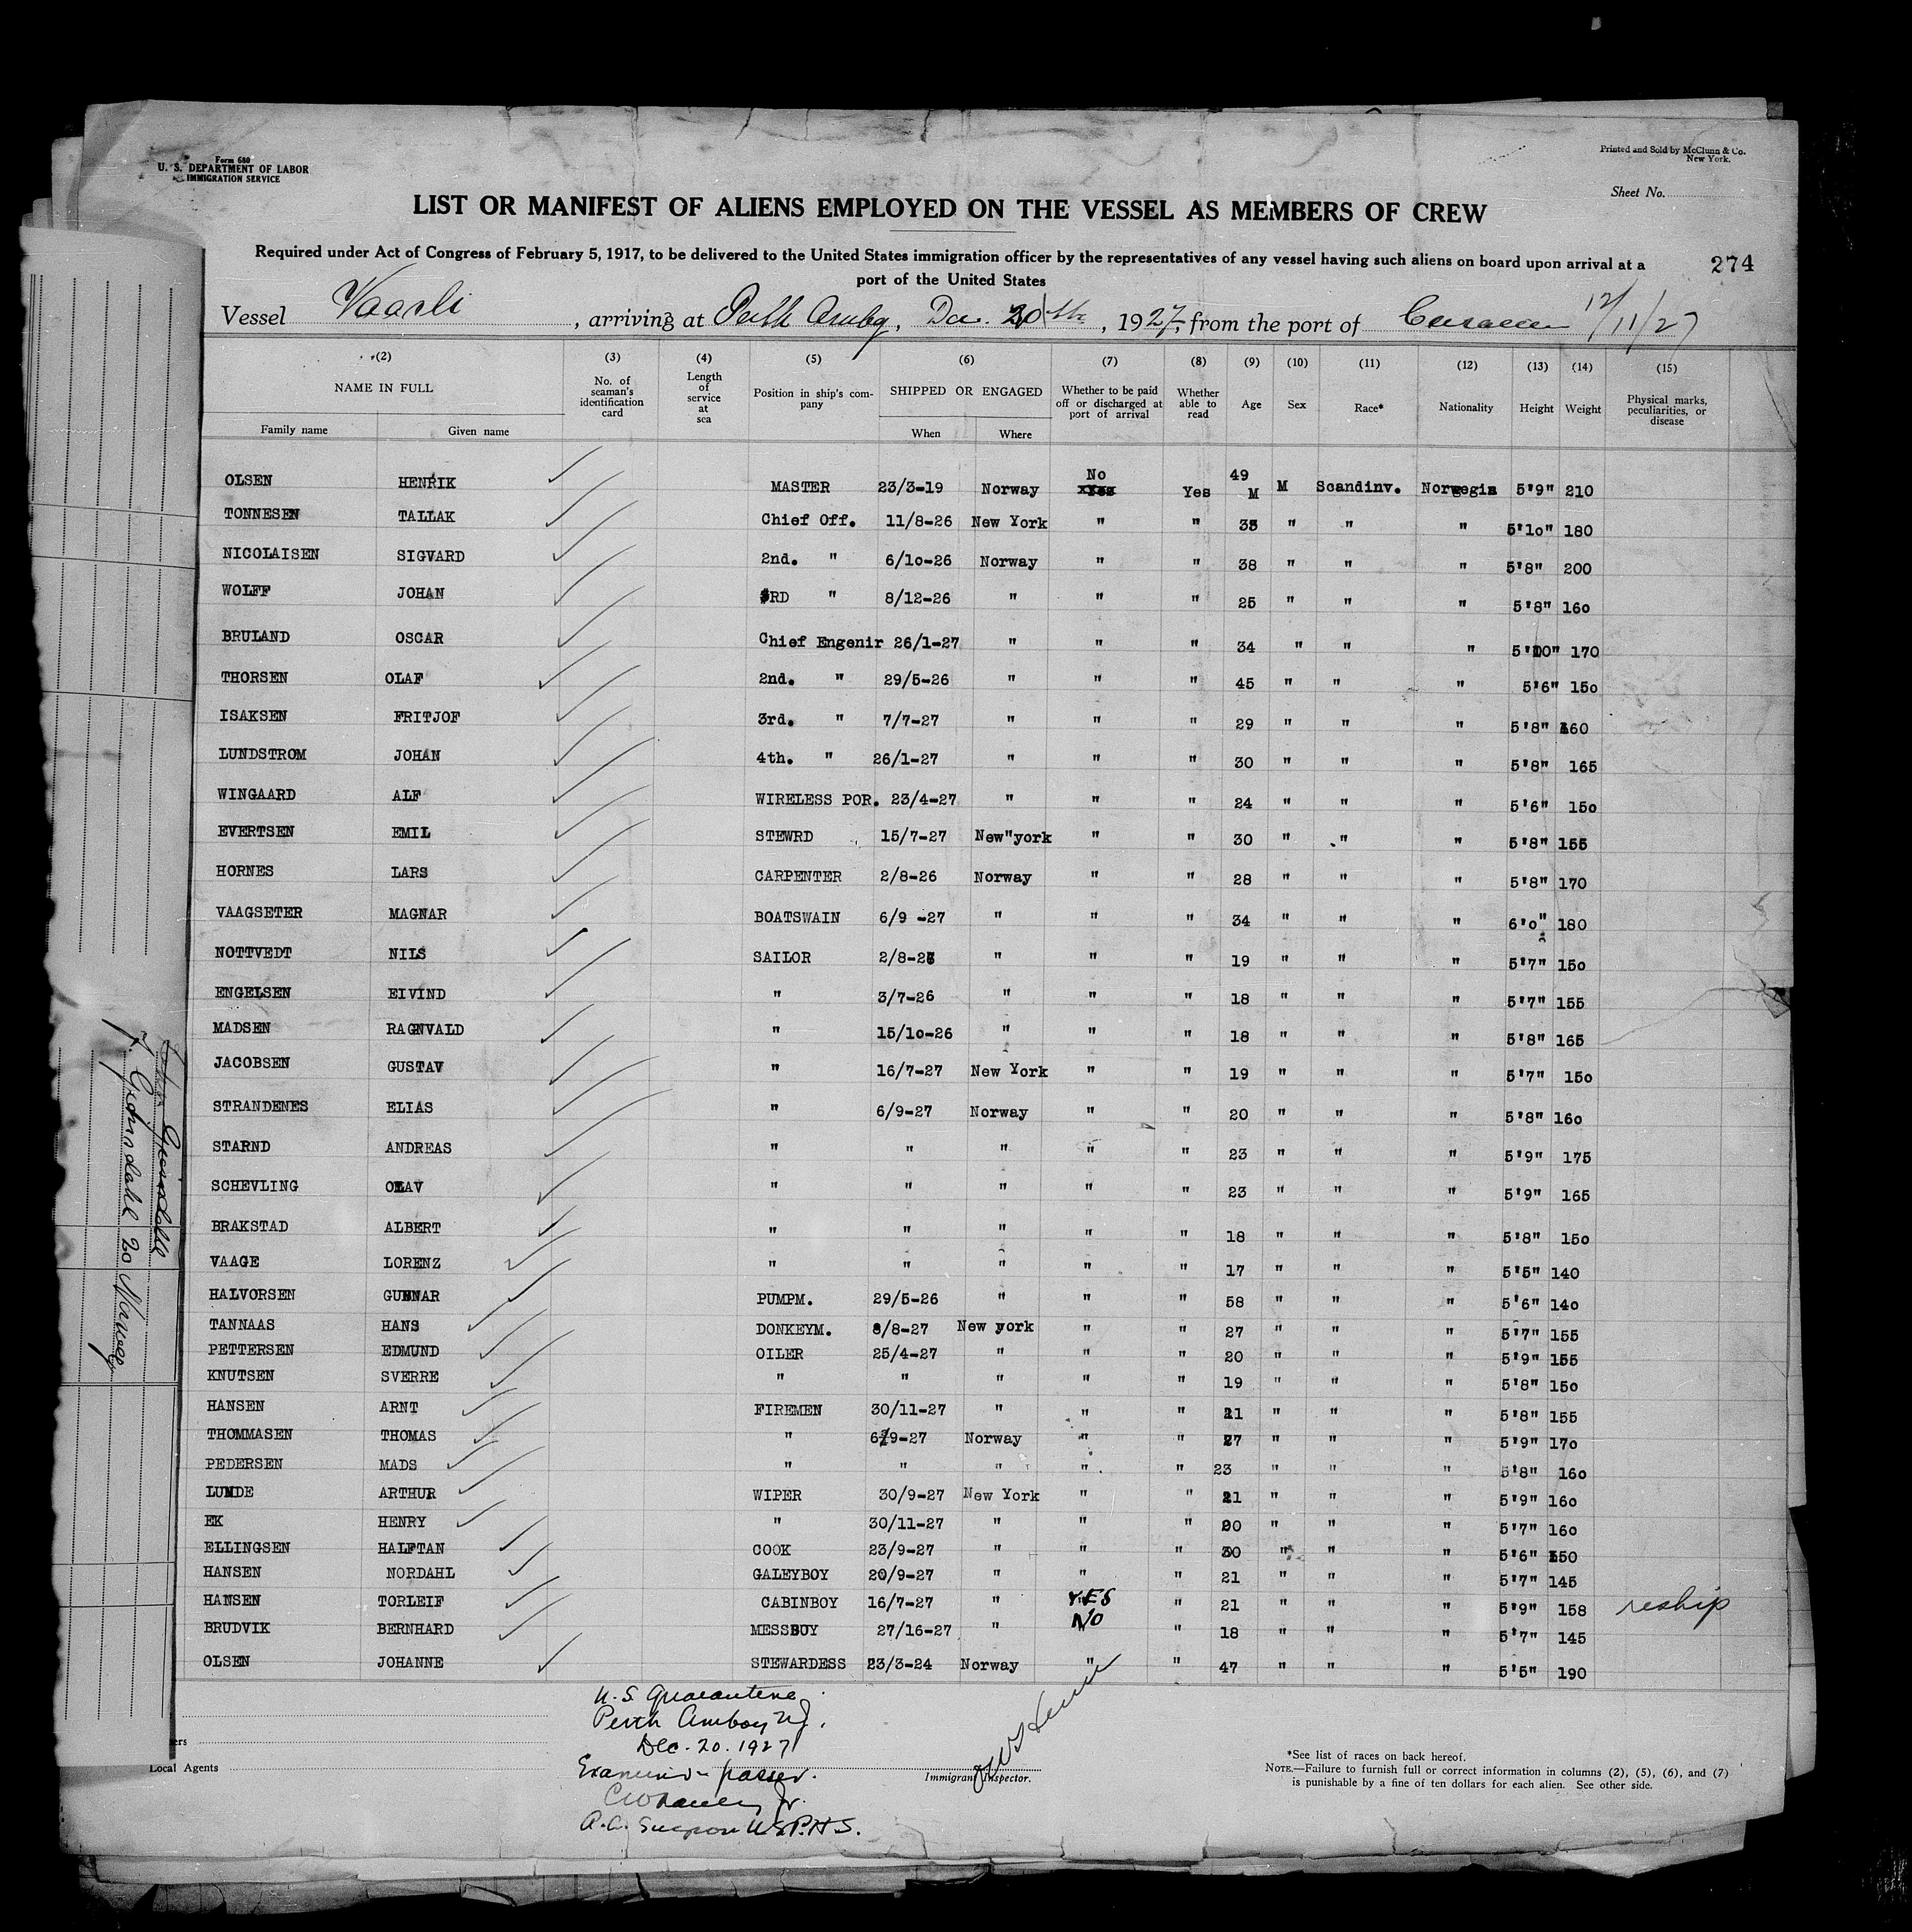 Form 680
U. S. DEPARTMENT OF LABOR
IMMIGRATION SERVICE
Printed and Sold by McClunn & Co.
New York.
Sheet No.
LIST OR MANIFEST OF ALIENS EMPLOYED ON THE VESSEL AS MEMBERS OF CREW
Required under Act of Congress of February 5, 1917, to be delivered to the United States immigration officer by the representatives of any vessel having such aliens on board upon arrival at a
port of the United States
274
Vessel Vaarli, arriving at Perth Amboy, Dec. 20th, 1927, from the port of Curacao 12/11/27
(2) (3) (4) (5) (6) (7) (8) (9) (10) (11) (12) (13) (14) (15)
NAME IN FULL No. of seaman's identification card Length of service at sea Position in ship's company SHIPPED OR ENGAGED Whether to be paid off or discharged at port of arrival Whether able to read Age Sex Race* Nationality Height Weight Physical marks, peculiarities, or disease
Family name Given name When Where
OLSEN HENRIK MASTER 23/3-19 Norway No Yes Yes 49 M M Scandinv. Norwegin 5'9" 210
TONNESEN TALLAK Chief Off. 11/8-26 New York " " 35 " " " 5'10" 180
NICOLAISEN SIGVARD 2nd. " 6/10-26 Norway " " 38 " " " 5'8" 200
WOLFF JOHAN 3RD " 8/12-26 " " " 25 " " " 5'8" 160
BRULAND OSCAR Chief Engenir 26/1-27 " " " 34 " " " 5'10" 170
THORSEN OLAF 2nd. " 29/5-26 " " " 45 " " " 5'6" 150
ISAKSEN FRITJOF 3rd. " 7/7-27 " " " 29 " " " 5'8" 160
LUNDSTROM JOHAN 4th. " 26/1-27 " " " 30 " " " 5'8" 165
WINGAARD ALF WIRELESS POR. 23/4-27 " " " 24 " " " 5'6" 150
EVERTSEN EMIL STEWRD 15/7-27 New"york " " 30 " " " 5'8" 155
HORNES LARS CARPENTER 2/8-26 Norway " " 28 " " " 5'8" 170
VAAGSETER MAGNAR BOATSWAIN 6/9 -27 " " " 34 " " " 6'0" 180
NOTTVEDT NILS SAILOR 2/8-26 " " " 19 " " " 5'7" 150
ENGELSEN EIVIND " 3/7-26 " " " 18 " " " 5'7" 155
MADSEN RAGNVALD " 15/10-26 " " " 18 " " " 5'8" 165
JACOBSEN GUSTAV " 16/7-27 New York " " 19 " " " 5'7" 150
STRANDENES ELIAS " 6/9-27 Norway " " 20 " " " 5'8" 160
STARND ANDREAS " " " " " 23 " " " 5'9" 175
SCHEVLING OLAV " " " " " 23 " " " 5'9" 165
BRAKSTAD ALBERT " " " " " 18 " " " 5'8" 150
VAAGE LORENZ " " " " " 17 " " " 5'5" 140
HALVORSEN GUNNAR PUMPM. 29/5-26 " " " 58 " " " 5'6" 140
TANNAAS HANS DONKEYM. 8/8-27 New york " " 27 " " " 5'7" 155
PETTERSEN EDMUND OILER 25/4-27 " " " 20 " " " 5'9" 155
KNUTSEN SVERRE " " " " " 19 " " " 5'8" 150
HANSEN ARNT FIREMEN 30/11-27 " " " 21 " " " 5'8" 155
THOMMASEN THOMAS " 6/9-27 Norway " " 27 " " " 5'9" 170
PEDERSEN MADS " " " " " 23 " " " 5'8" 160
LUNDE ARTHUR WIPER 30/9-27 New York " " 21 " " " 5'9" 160
EK HENRY " 30/11-27 " " " 20 " " " 5'7" 160
ELLINGSEN HALFTAN COOK 23/9-27 " " " 30 " " " 5'6" 150
HANSEN NORDAHL GALEYBOY 20/9-27 " " " 21 " " " 5'7" 145
HANSEN TORLEIF CABINBOY 16/7-27 " YES " 21 " " " 5'9" 158 reship
BRUDVIK BERNHARD MESSBUY 27/16-27 " NO " 18 " " " 5'7" 145
OLSEN JOHANNE STEWARDESS 23/3-24 Norway " " 47 " " " 5'5" 190
U.S. Quarantine
Perth Amboy NJ.
Dec. 20. 1927
Examined & passed.
A.A. Surgeon U.S.P.H.S.
ers
Local Agents
Immigrant Inspector.
*See list of races on back hereof.
NOTE.—Failure to furnish full or correct information in columns (2), (5), (6), and (7)
is punishable by a fine of ten dollars for each alien. See other side.
20 Norway